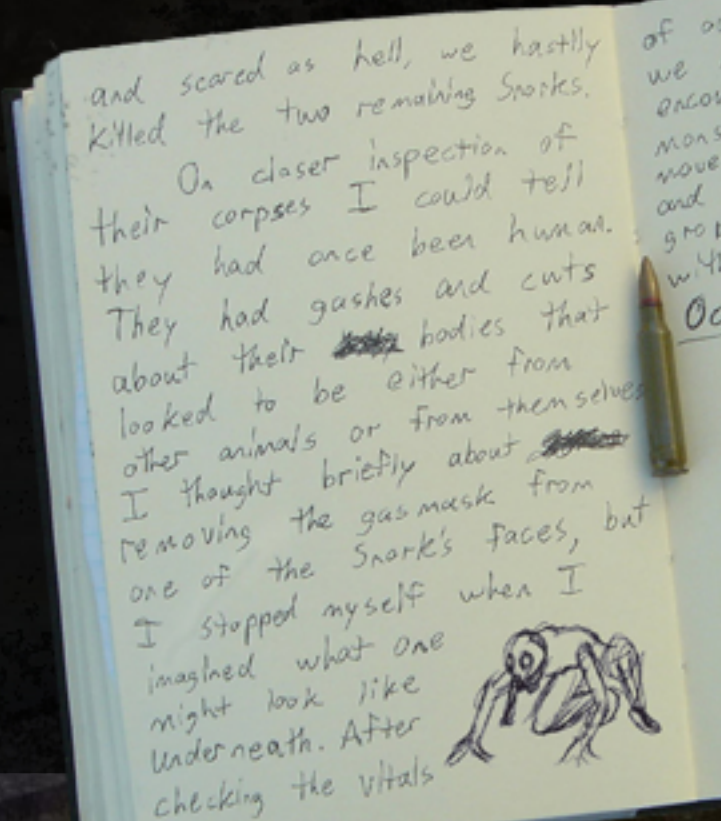 and scared as hell, we hastily
killed the two remaining Snorks.
On closer inspection of
their corpses I could tell
they had once been human.
They had gashes and cuts
about their bodies that
looked to be either from
other animals or from themselves
I thought briefly about
removing the gasmask from
one of the Snork's faces, but
I stopped myself when I
imagined what one
might look like
underneath. After
checking the vitals
of
we
and